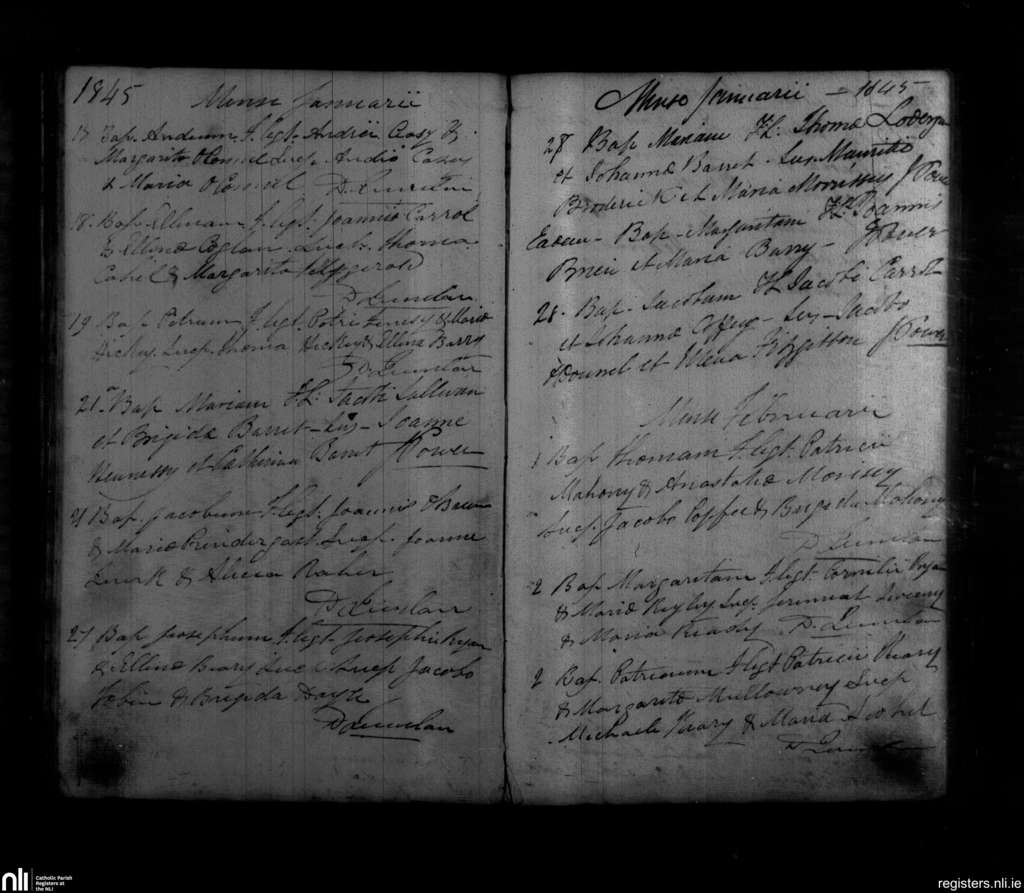 1845
Mense Januarii
Bap. Andream F. legt. Andrei Casy &
Margarita OConnel Susp. Andrio Casey
& Maria OConnel D. Quinlan
18. Bap. Ellenam F. legt. Joannis Carrol
& Ellena Susb. Thoma
Cahel & Margarita Fitzgerald
D Quinlan
19. Bap Petrum F legt. Patri & Maria
Hickey. Susp. Thoma Hickey & Ellena Barry
D. Quinlan
21. Bap Mariam FL: Jacobi Sullivan
et Brigidæ Barret - Sus - Joanne
Hennessy et Catherina Barret JPower
21 Bap. Jacobum F. legt. Joannis
& Maria Prindergast. Susp. Joanne
Quirk & Alicia Raher
D Quinlan
27 Bap Josephum F. legt Josephi Ryan
& Ellena Susp Jacobo
Tobin & Brigida
D Quinlan
Mense Januarii - 1845
28 Bap Mariam FL. Thomæ
et Johannæ Barret - Sus. Mauritio
Broderick et Maria Morrissey JPower
Eadem - Bap - Margaritam FL. Joannis
et Maria Barry - JPower
28. Bap. Jacobum FL Jacobi Carrol
et Johannæ Coffey - Sus - Jacobo
et JPower
Mense Februarii
1 Bap Thomam F. legt. Patricii
Mahony & Anastatia Morisey
Susp. Jacobo Coffee & Brigida Mahony
D Quinlan
2 Bap Margaritam F legt. Cornelii Ryan
& Maria Susp Jeremiah
& Maria Ready D. Quinlan
2 Bap. Patricium F legt Patricii Keary
& Margarita Mullowney Susp
Michaele Keary & Maria
D Quinlan
nli
Catholic Parish
Registers at
the NLI
registers.nli.ie